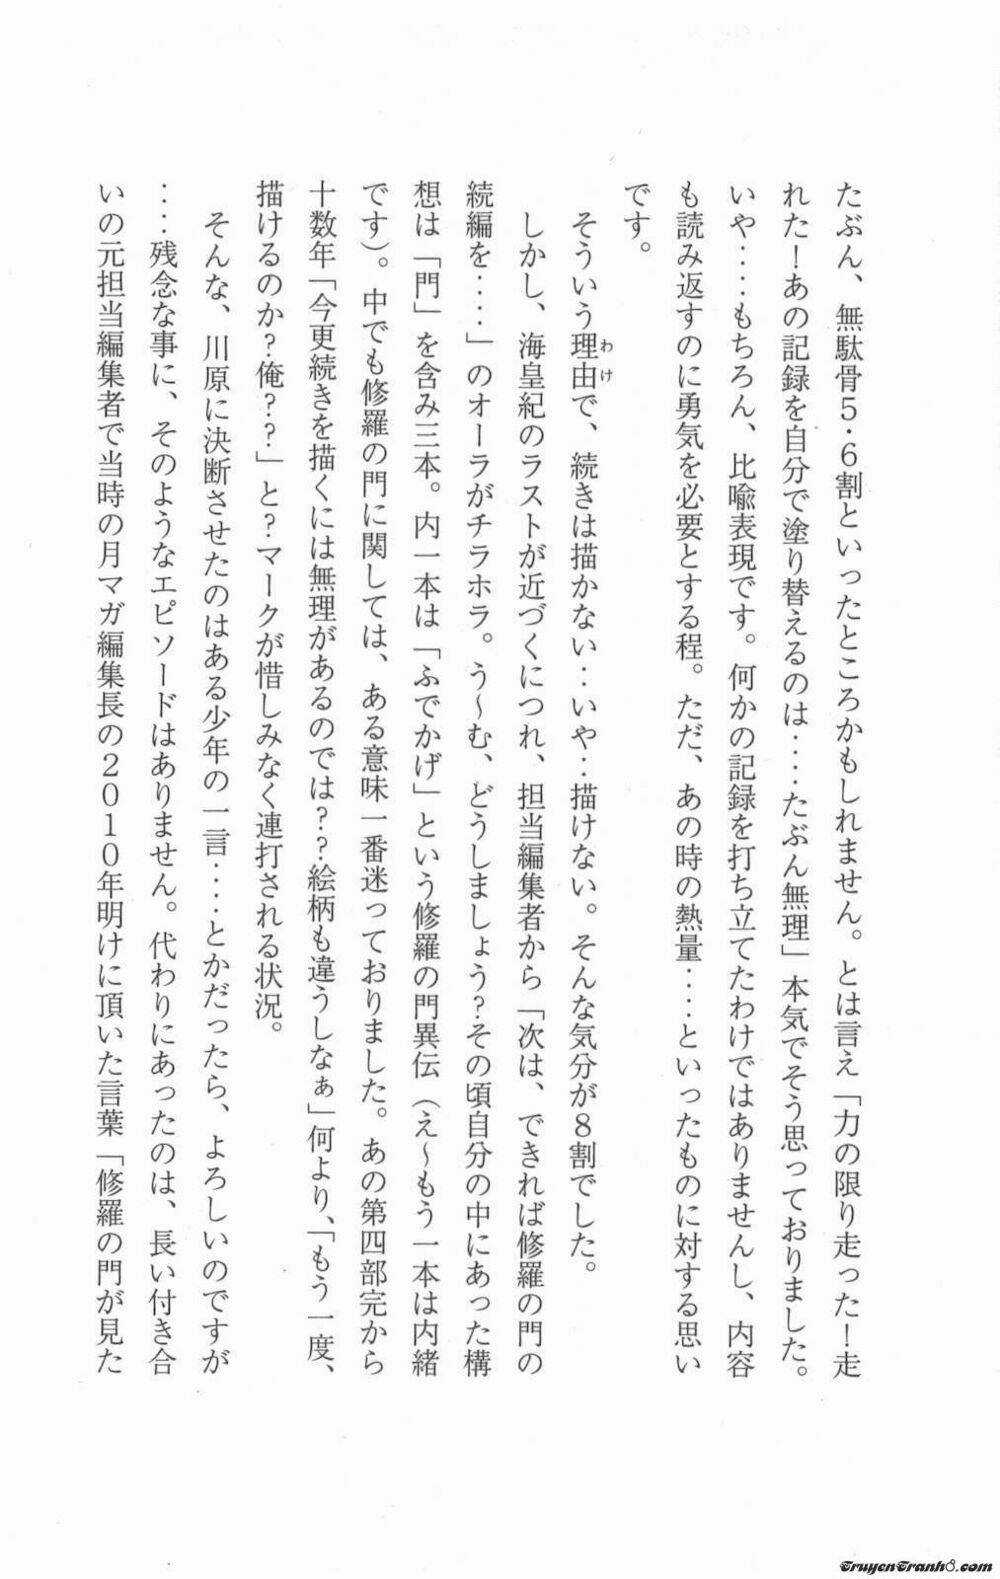 たぶん、無駄骨5・6割といったところかもしれません。とは言え「力の限り走った！走
れた！あの記録を自分で塗り替えるのは‥‥たぶん無理」本気でそう思っておりました。
いや‥‥もちろん、比喩表現です。何かの記録を打ち立てたわけではありませんし、内容
も読み返すのに勇気を必要とする程。ただ、あの時の熱量‥‥といったものに対する思い
です。
そういう理由で、続きは描かない‥いや‥描けない。そんな気分が8割でした。
わけ
しかし、海皇紀のラストが近づくにつれ、担当編集者から「次は、できれば修羅の門の
続編を‥‥」のオーラがチラホラ。う～む、どうしましょう？その頃自分の中にあった構
想は「門」を含み三本。内一本は「ふでかげ」という修羅の門異伝（え～もう一本は内緒
です）。中でも修羅の門に関しては、ある意味一番迷っておりました。あの第四部完から
十数年「今更続きを描くには無理があるのでは？？絵柄も違うしなぁ」何より、「もう一度、
描けるのか？俺？？」と？マークが惜しみなく連打される状況。
そんな、川原に決断させたのはある少年の一言‥‥とかだったら、よろしいのですが
‥‥残念な事に、そのようなエピソードはありません。代わりにあったのは、長い付き合
いの元担当編集者で当時の月マガ編集長の2010年明けに頂いた言葉「修羅の門が見た
TruyenTranh8.com